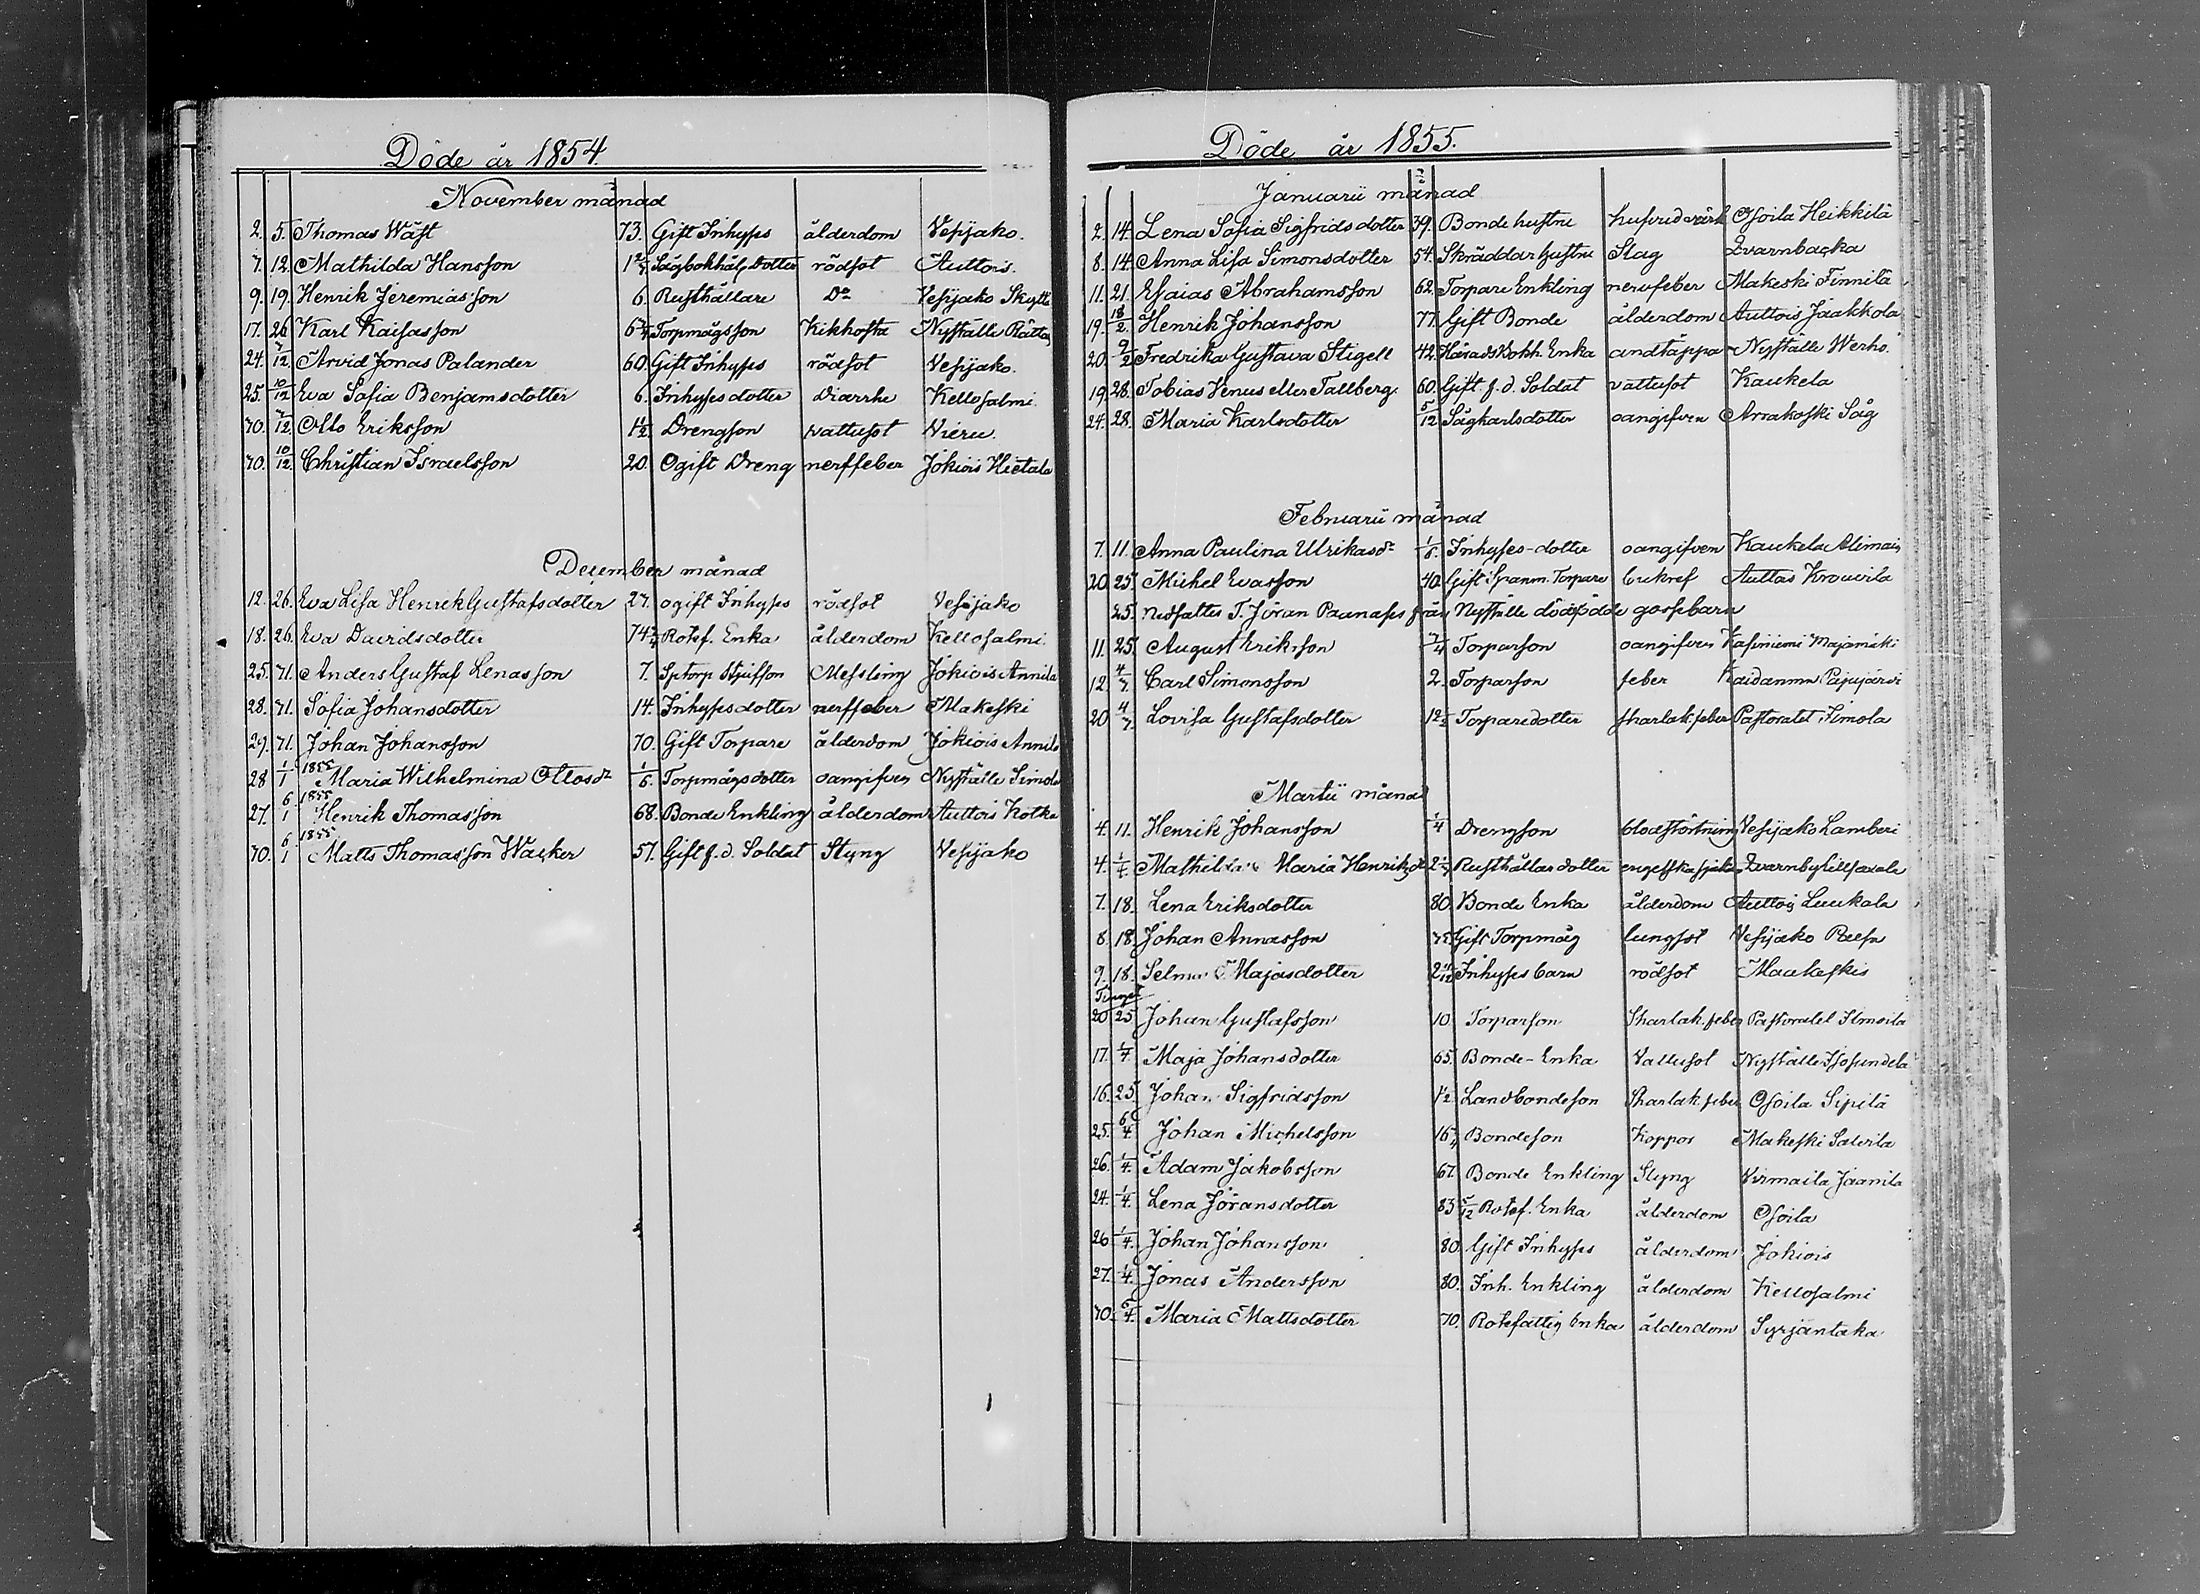 Döde år 1854
November månad
2. 5. Thomas Wäst 73. Gift Inhyses ålderdom Vesijako.
7. 12. Mathilda Hansson Sågbokhåls Dotter rödsot Auttois.
9. 19. Henrik Jeremiasson 6. Rusthållare Do Vesijako Skyttä
17. 26 Karl Kaisasson 6 3/4 Torpmågsson Kikhosta Nyställe
24. 3/12 Arvid Jonas Palander 60. Gift Inhyses rödsot Vesijako.
25. 10/12 Eva Sofia Benjamsdotter 6. Inhyses dotter Diarrhe Kellosalmi.
30. 3/12 Otto Eriksson 1 1/2 Drengson vattusot Nieru.
30. 10/12 Christian Israelsson 20. Ogift Dreng nerffeber Jokiois Hietala
December månad
12. 26. Eva Lisa Henrik Gustafsdotter 27. ogift Inhyses rödsot Vesijako
18. 26. Eva Davidsdotter 74 3/4 Rotef. Enka ålderdom Kellosalmi.
25. 31. Anders Gustaf Lenasson 7. Sptorp Styfson Messling Jokiois Annila
28. 31. Sofia Johansdotter 14. Inhysesdotter nerffeber Makeski
29. 31. Johan Johansson 70. Gift Torpare ålderdom Jokiois Annila
28 1/1 1855 Maria Wilhelmina Ottosdr 1/6 Torpmågsdotter oangifven Nyställe Simola
27. 6/1 1855 Henrik Thomasson 68. Bonde Enkling ålderdom Auttois Kotka
30. 6/1 1855 Matts Thomasson Wacker 57. Gift f.d. Soldat Styng Vesijako
Döde år 1855.
Januarii månad
2. 14. Lena Sofia Sigfridsdotter 39. Bonde hustru hufvudvärk Osoila Heikkilä
8. 14. Anna Lisa Simonsdotter 54. Skräddar hustru Slag Qvarnbacka
11. 21. Esaias Abrahamsson 62. Torpare Enkling nervfeber Makeski Finnilä
19. 18/2. Henrik Johansson 77. Gift Bonde ålderdom Auttois Jaakkola
20 9/2 Fredrika Gustava Stigell 42. Härads Bokh. Enka andtäppa Nyställe Werho.
19. 28. Tobias Venus eller Tallberg. 60. Gift f.d. Soldat vattusot Kaukela
24. 28. Maria Karlsdotter 5/12 Sågkarlsdotter oangifven Arrakoski Såg
Februarii månad
7. 11. Anna Paulina Ulrikasdr 1/6 Inhyses-dotter oangifven Kaukela Alimais
20 25. Michel Evasson 40. Gift Spanm. Torpare bukref Auttois Krouvila
25. nedsattes T. Jöran från Nyställe dödfödde gossebarn
11. 25. August Eriksson 3/4 Torparson oangifven Kasiniemi Majamäki
12. 4/3. Carl Simonsson 2. Torparson feber Kaidanmn Pajujärvi
20 4/3 Lovisa Gustafsdotter 1 2/3 Torparedotter skarlak. feber Pastoratet Simola
Martii månad
4. 11. Henrik Johansson 1/4 Drengson blodstörtning Vesijako Lamberi
4. 1/4 Mathilda Maria Henriksdr Rusthållardotter engelska sjukan
7. 18. Lena Eriksdotter 80. Bonde Enka ålderdom Auttois Luukala
8. 18. Johan Annasson 35. Gift Torpmåg lungsot Vesijako
9. 18. Selma Majasdotter Inhyses barn rödsot Maakeskis
20 25 Johan Gustafsson 10 Torparson Skarlak. feber Pastoratet
17. 1/4. Maja Johansdotter 65. Bonde-Enka Vattusot Nyställe
16. 25. Johan Sigfridsson 1 1/2. Landbondeson Skarlak. feber Osoila Sipilä
25. 6/4 Johan Michelsson Bondeson Koppor Makeski Saloila
26. 1/4. Adam Jakobsson 67. Bonde Enkling Styng Virmaila Jaamila
24. 1/4. Lena Jöransdotter 83 5/12 Rotef. Enka ålderdom Osoila
26 1/4. Johan Johansson 80. Gift Inhyses ålderdom Jokiois
27. 1/4. Jonas Andersson 80. Inh. Enkling ålderdom Kellosalmi
30. 6/4. Maria Mattsdotter 70. Rotefattig Enka ålderdom Syrjäntaka